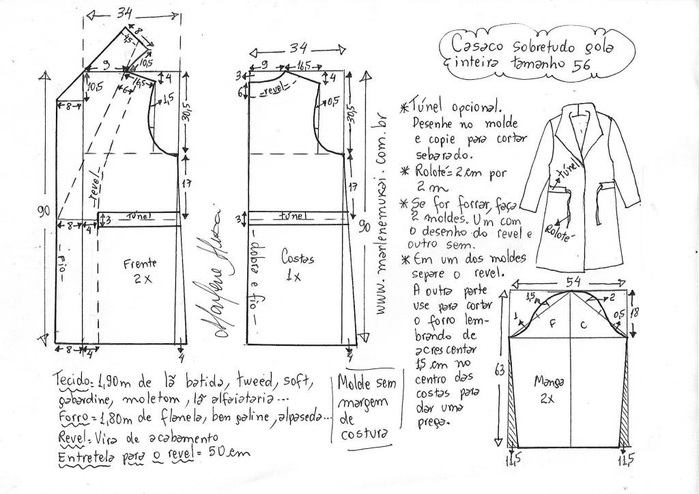 Casaco sobretudo gola
inteira tamanho 56
34
8
15
8
10,5
9
10,5
8
6
16,5
4
1,5
30,5
17
90
revel
3
túnel
4
Frente
2x
fio
8
4
4
34
9
16,5
3
6
revel
4
0,5
30,5
17
90
3
túnel
Costas
1x
dobra e fio
4
Marlene Mukai
www.marlenemukai.com.br
* Túnel opcional.
Desenhe no molde
e copie para cortar
sebarado.
* Rolotê: 2 cm por
2 m
* Se for forrar, faça
2 moldes. Um com
o desenho do revel e
outro sem.
* Em um dos moldes
separe o revel.
A outra parte
use para cortar
o forro lem-
brando de
acrescentar
15 cm no
centro das
costas para
dar uma
prega.
túnel
Rolotê
54
1,5
2
1
0,5
18
F
C
63
Manga
2x
11,5
11,5
Tecido: 1,90m de lã batida, tweed, soft,
gabardine, moletom, lã alfaiataria...
Forro = 1,80m de flanela, bengaline, alpaseda...
Revel: Vira de acabamento
Entretela para o revel = 50 cm
Molde sem
margem
de
costura